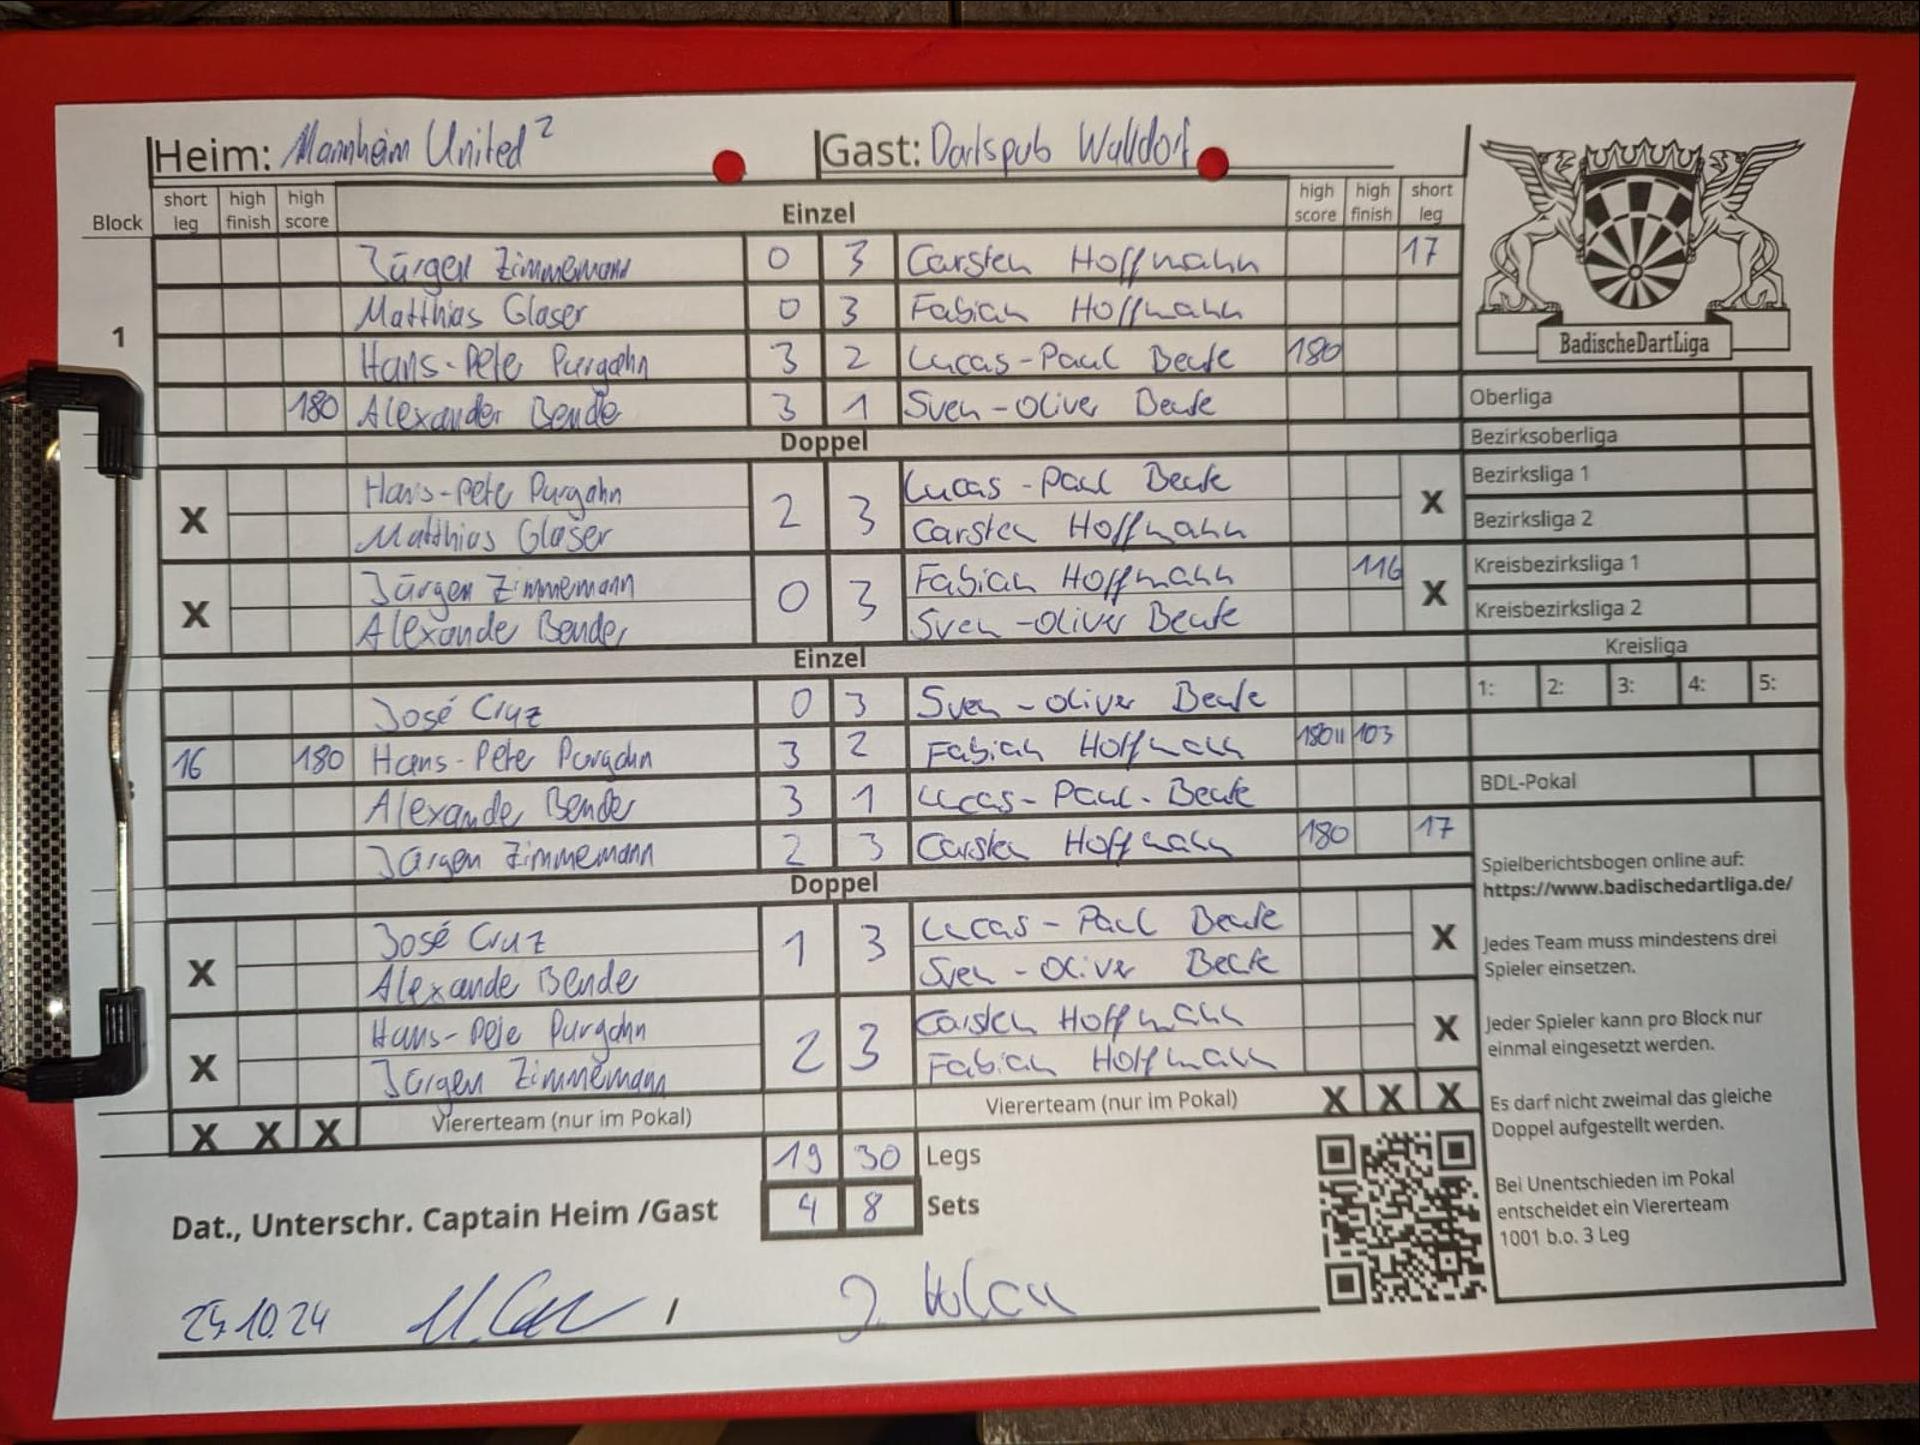 Heim: Mannheim United 2 Gast: Dartspub Walldorf
Block short leg high finish high score Einzel high score high finish short leg
Jürgen Zimmemann 0 3 Carsten Hoffmann 17
Matthias Glaser 0 3 Fabian Hoffmann
1
Hans-Pete Purgahn 3 2 Lucas-Paul Beute 180
180 Alexander Bende 3 1 Sven-Oliver Beute
Doppel
Hans-Pete Purgahn Lucas-Paul Beute
X 2 3 X
Matthias Glaser Carsten Hoffmann
Jürgen Zimmemann Fabian Hoffmann 116
X 0 3 X
Alexande Bender Sven-Oliver Beute
Einzel
José Cruz 0 3 Sven-Oliver Beute
16 180 Hans-Pete Purgahn 3 2 Fabian Hoffmann 180 II 103
Alexande Bende 3 1 Lucas-Paul-Beute
Jürgen Zimmemann 2 3 Carsten Hoffmann 180 17
Doppel
José Cruz Lucas-Paul Beute
X 1 3 X
Alexande Bende Sven-Oliver Beute
Hans-Pete Purgahn Carsten Hoffmann
X 2 3 X
Jürgen Zimmemann Fabian Hoffmann
X X X Viererteam (nur im Pokal) Viererteam (nur im Pokal) X X X
19 30 Legs
4 8 Sets
Dat., Unterschr. Captain Heim /Gast
10.24 /
BadischeDartLiga
Oberliga
Bezirksoberliga
Bezirksliga 1
Bezirksliga 2
Kreisbezirksliga 1
Kreisbezirksliga 2
Kreisliga
1: 2: 3: 4: 5:
BDL-Pokal
Spielberichtsbogen online auf:
https://www.badischedartliga.de/
Jedes Team muss mindestens drei
Spieler einsetzen.
Jeder Spieler kann pro Block nur
einmal eingesetzt werden.
Es darf nicht zweimal das gleiche
Doppel aufgestellt werden.
Bei Unentschieden im Pokal
entscheidet ein Viererteam
1001 b.o. 3 Leg